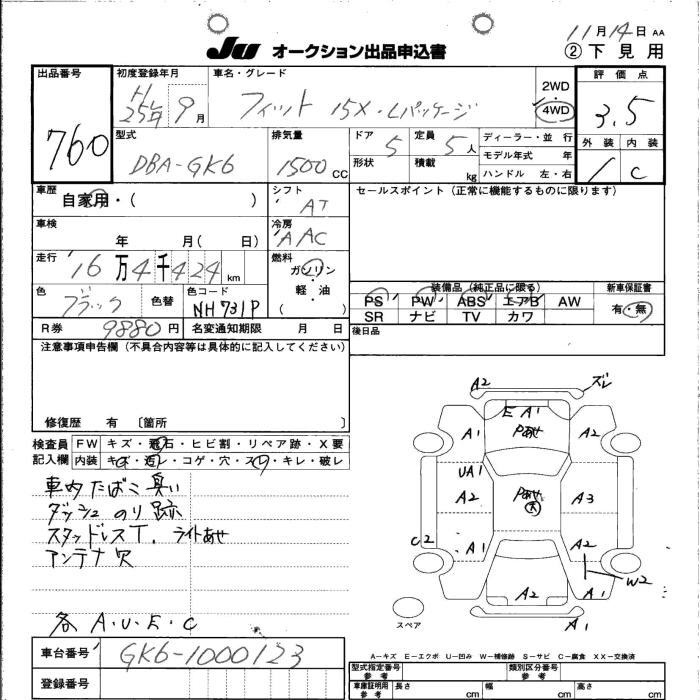 11月14日 AA
JU オークション出品申込書 ②下見用
出品番号 初度登録年月 車名・グレード 評価点
760 H25年 9月 フィット 15X・Lパッケージ 2WD・4WD 3.5
型式 排気量 ドア 定員 ディーラー・並行 外装 内装
DBA-GK6 1500CC 5 5人 モデル年式 年 C
形状 積載 kg ハンドル 左・右
車歴 シフト セールスポイント(正常に機能するものに限ります)
自家用・( ) AT
車検 冷房
年 月( 日) AAC
走行 燃料
16万4千424km ガソリン・軽油( )
装備品(純正品に限る) 新車保証書
色 色替 色コード PS PW ABS エアB AW 有・無
ブラック NH731P SR ナビ TV カワ
R券 9880円 名変通知期限 月 日 後日品
注意事項申告欄(不具合内容等は具体的に記入してください)
修復歴 有 〔箇所 〕
検査員記入欄 FW キズ・飛石・ヒビ割・リペア跡・X要
内装 キズ・汚レ・コゲ・穴・スレ・キレ・破レ
車内たばこ臭い
ダッシュのり跡
スタッドレスT. ライトあせ
アンテナ穴
各 A・U・E・C
A2 ズレ
E A1
A1 Pあせ A2
UA1
A2 Pあせ 大 A3
C2 A1 A2
W2
A2 A1
スペア A1
A-キズ E-エクボ U-凹み W-補修跡 S-サビ C-腐食 XX-交換済
車台番号 GK6-1000123
型式指定番号 参考 類別区分番号 参考
登録番号 車庫証明用 参考 長さ cm 幅 cm 高さ cm